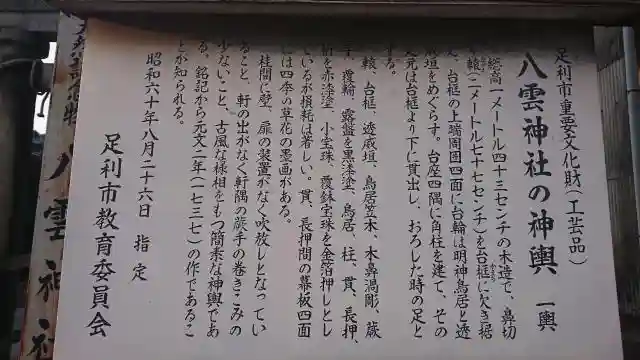 足利市重要文化財(工芸品)
八雲神社の神輿 一輿
総高一メートル四十三センチの木造で、鼻切
轅(二メートル七十七センチ)を台框に欠き据
え、台框の上端周囲四面に台輪は明神鳥居と透
塀垣をめぐらす。台座四隅に角柱を建て、その
足元は台框より下に貫出し、おろした時の足と
する。
轅、台框、透戚垣、鳥居笠木、木鼻渦彫、蕨
手、覆輪、露盤を黒漆塗、鳥居、柱、貫、長押、
桁を赤漆塗、小宝珠、覆鉢宝珠を金箔押しとし
ているが損耗は著しい。貫、長押間の幕板四面
には四季の草花の墨画がある。
柱間に壁、扉の装置がなく吹放しとなってい
ること、軒の出がなく軒隅の蕨手の巻きこみの
少ないこと、古風な様相をもつ簡素な神輿であ
る。銘記から元文二年(一七三七)の作であるこ
とが知られる。
昭和六十年八月二十六日 指定
足利市教育委員会
八雲神社